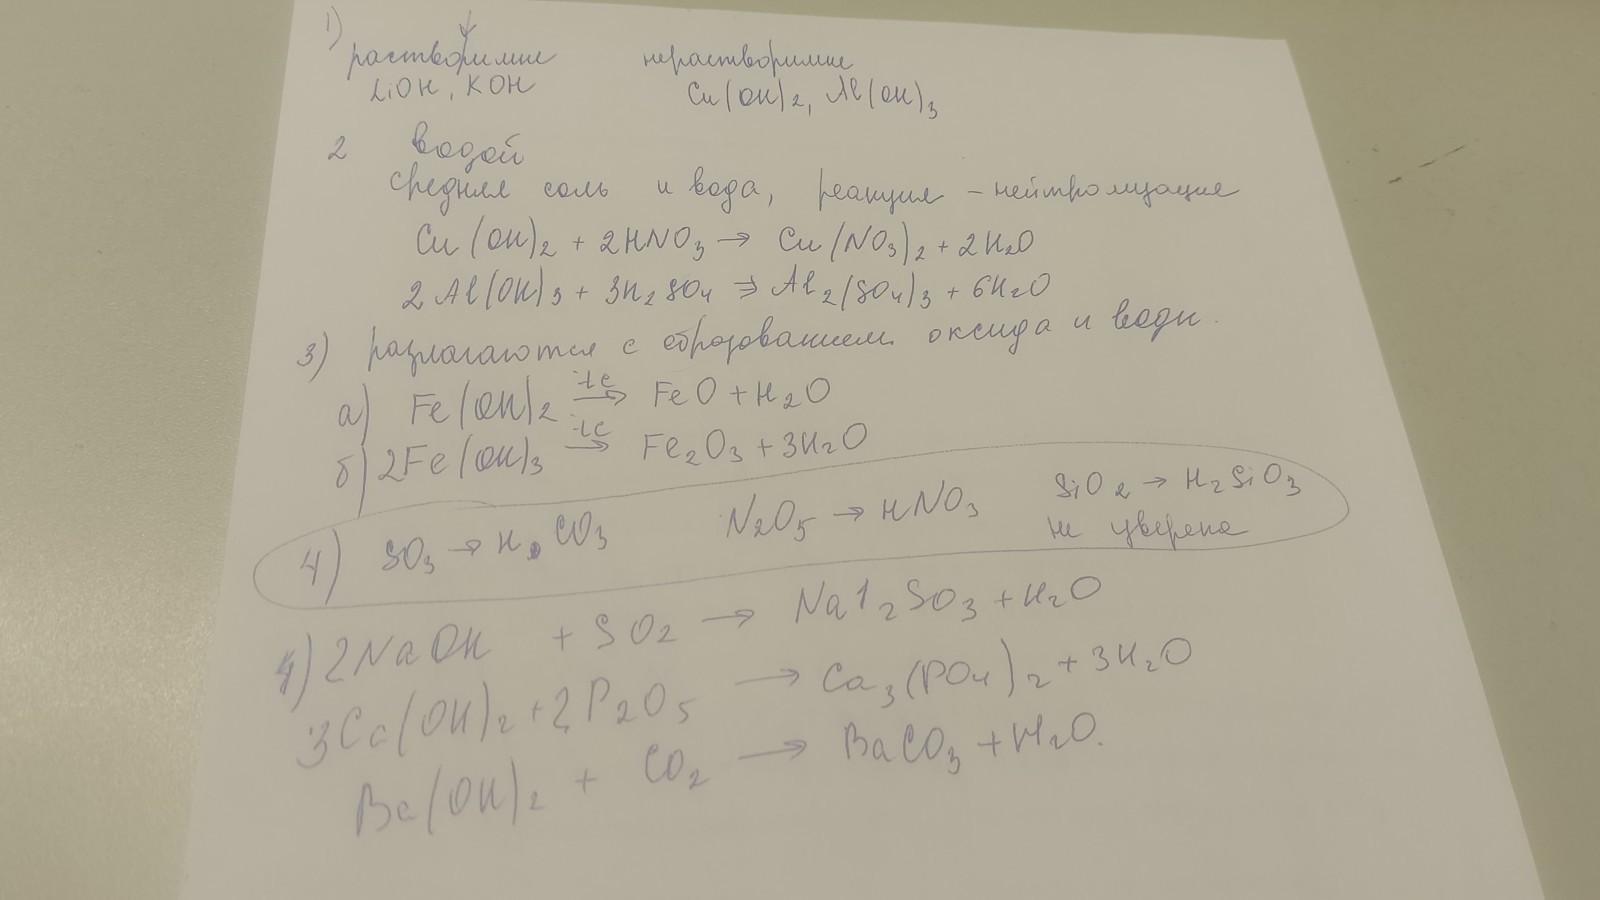 1)
растворимые нерастворимые
LiOH, KOH Cu(OH)2, Al(OH)3
2 водой
средняя соль и вода, реакция - нейтрализация
Cu(OH)2 + 2HNO3 → Cu(NO3)2 + 2H2O
2Al(OH)3 + 3H2SO4 → Al2(SO4)3 + 6H2O
3) разлагаются с образованием оксида и воды.
а) Fe(OH)2 →tc FeO + H2O
б) 2Fe(OH)3 →tc Fe2O3 + 3H2O
4) SO3 → H2CO3 N2O5 → HNO3 SiO2 → H2SiO3
не уверена
4) 2NaOH + SO2 → Na12SO3 + H2O
3Ca(OH)2 + P2O5 → Ca3(PO4)2 + 3H2O
Ba(OH)2 + CO2 → BaCO3 + H2O.